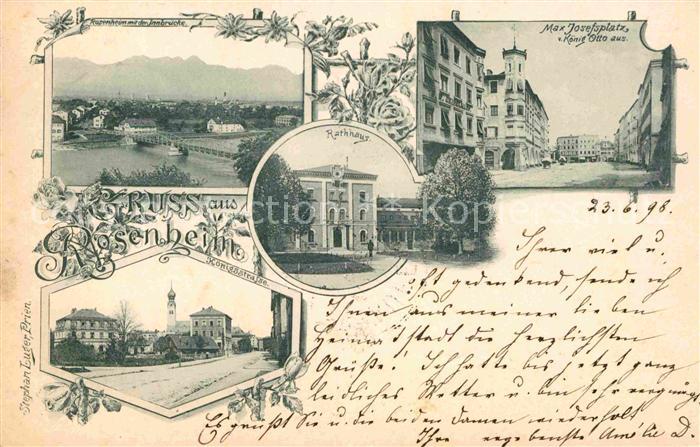 Rosenheim mit der Innbrücke.
Max Josefsplatz
v. König Otto aus.
Rathhaus.
GRUSS aus
Rosenheim
Königsstrasse.
Stephan Luger, Prien.
23.6.98.
Ihrer viel u.
oft gedenkend, sende ich
Ihnen aus meiner lieben
Heimatstadt die herzlichsten
Grüße! Ich hatte bis jetzt ganz
leidliches Wetter u. bin sehr vergnügt.
Es grüßt Sie u. die beiden Damen wiederholt
Ihre ergebenste Amélie D.